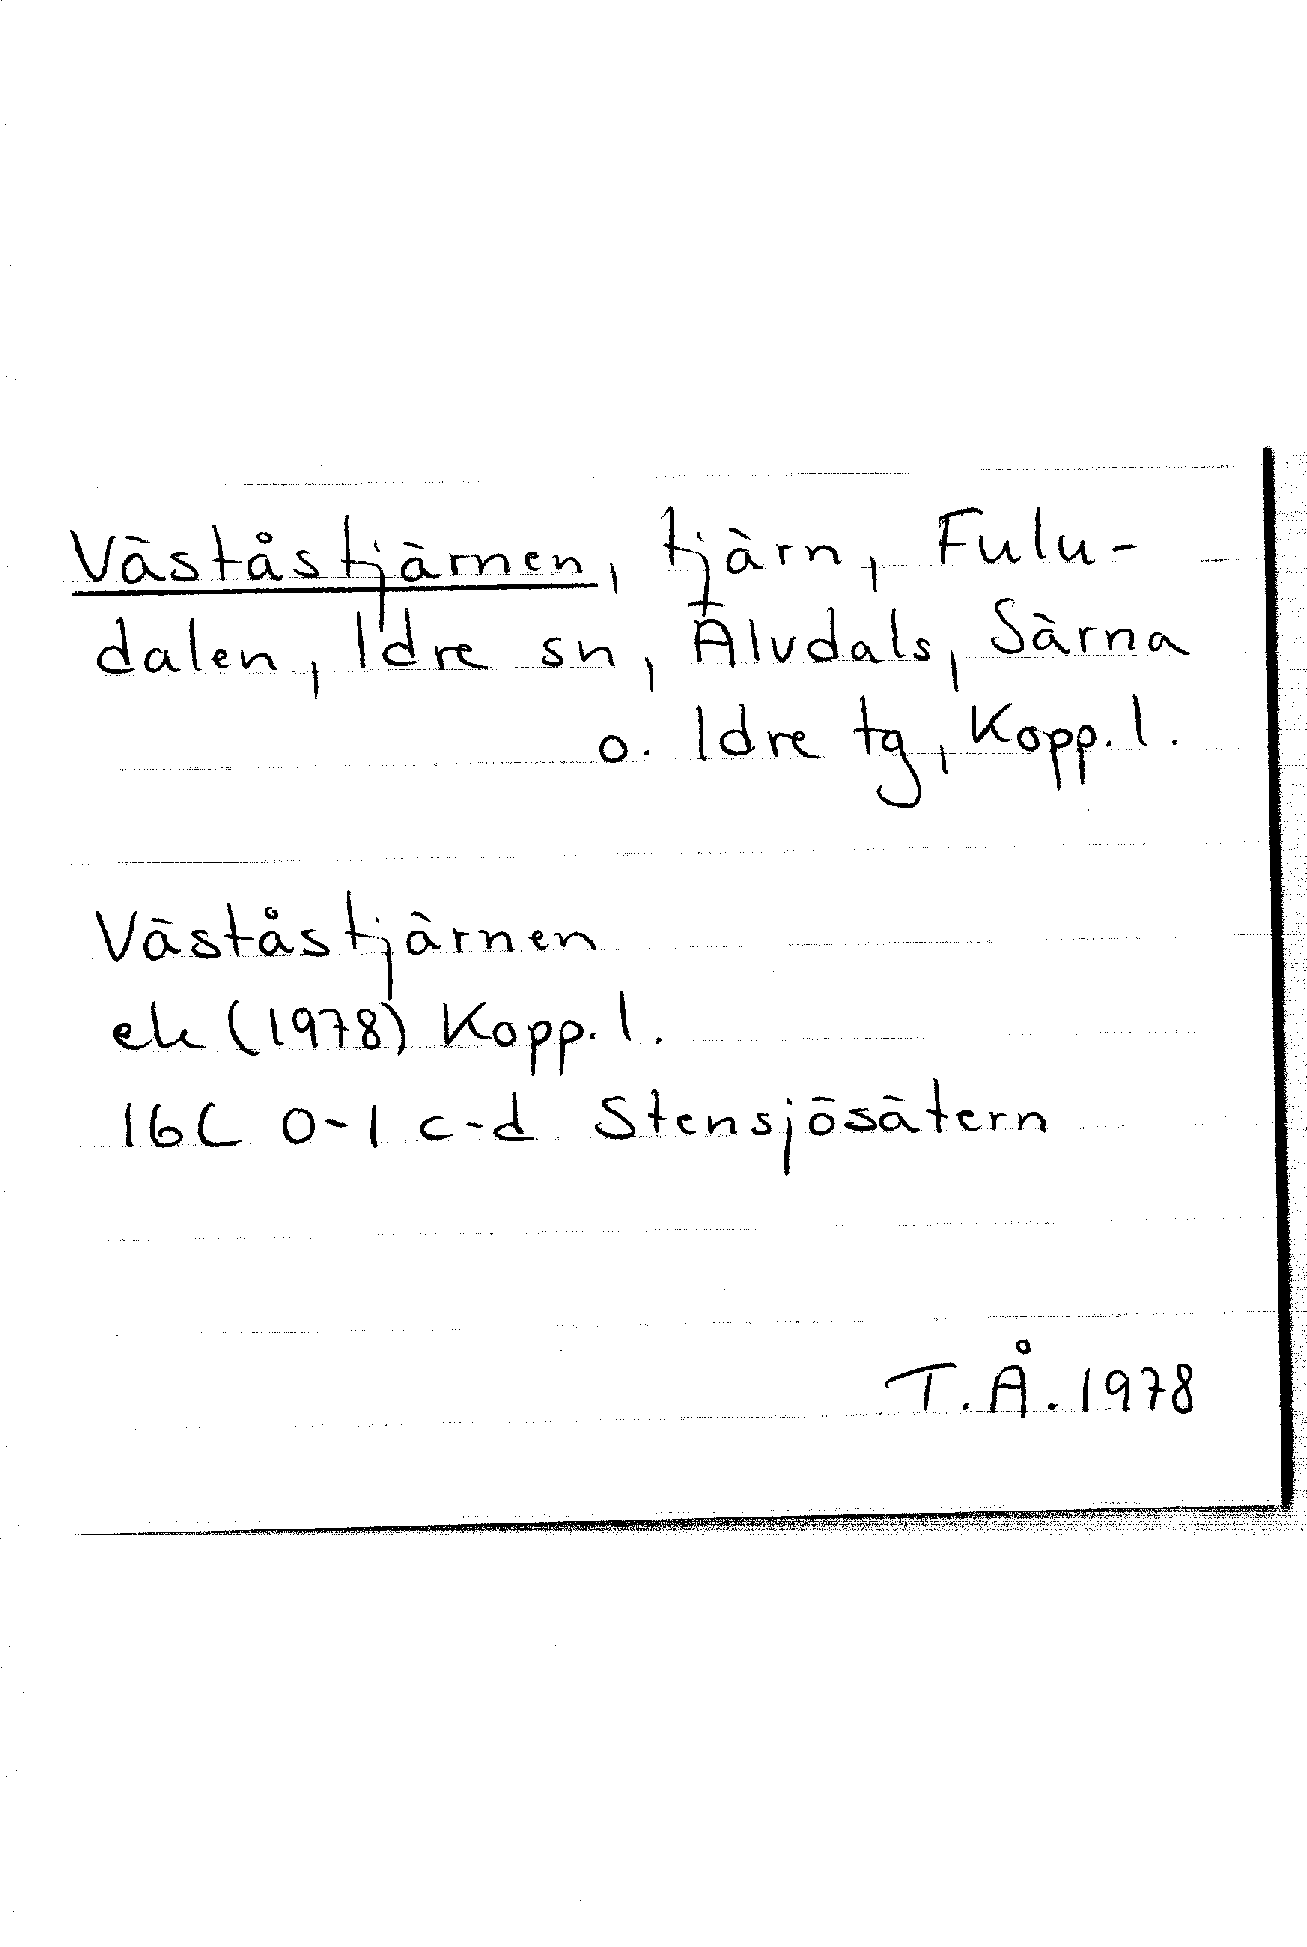 Väståstjärnen, tjärn, Fulu-
dalen, Idre sn, Älvdals, Särna
o. Idre tg, Kopp.l.
Väståstjärnen
ek (1978) Kopp.l.
16C 0-1 c-d Stensjösätern
T.Å.1978